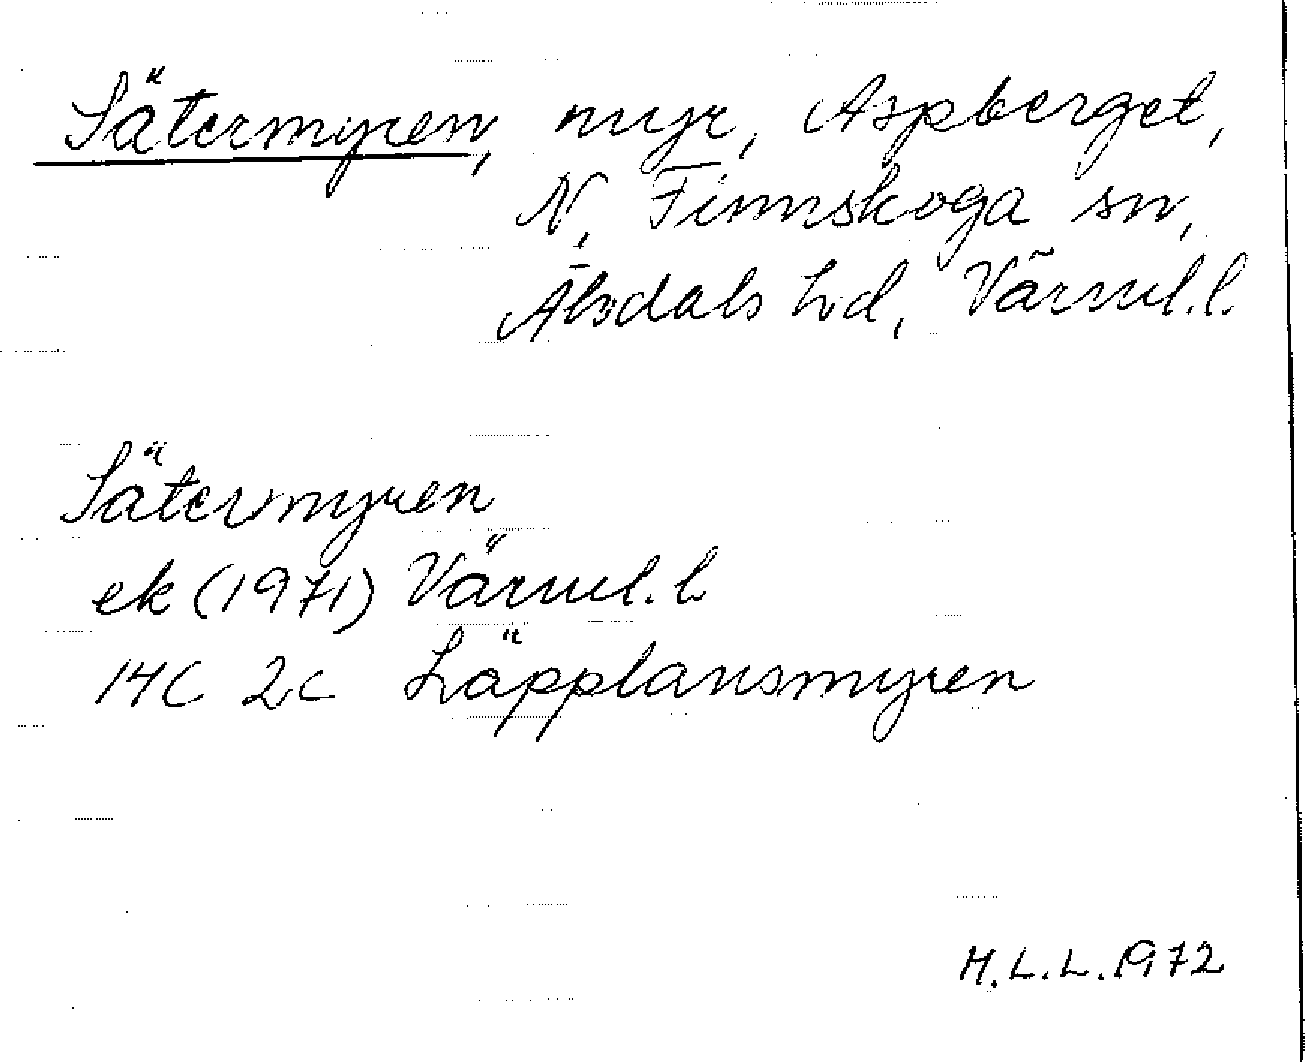 Sätermyren, myr, Aspberget,
N. Finnskoga sn,
Älvdals hd, Värml. l.
Sätermyren
ek (1971) Värml. l.
14C 2c Läpplansmyren
M.L.L. 1972